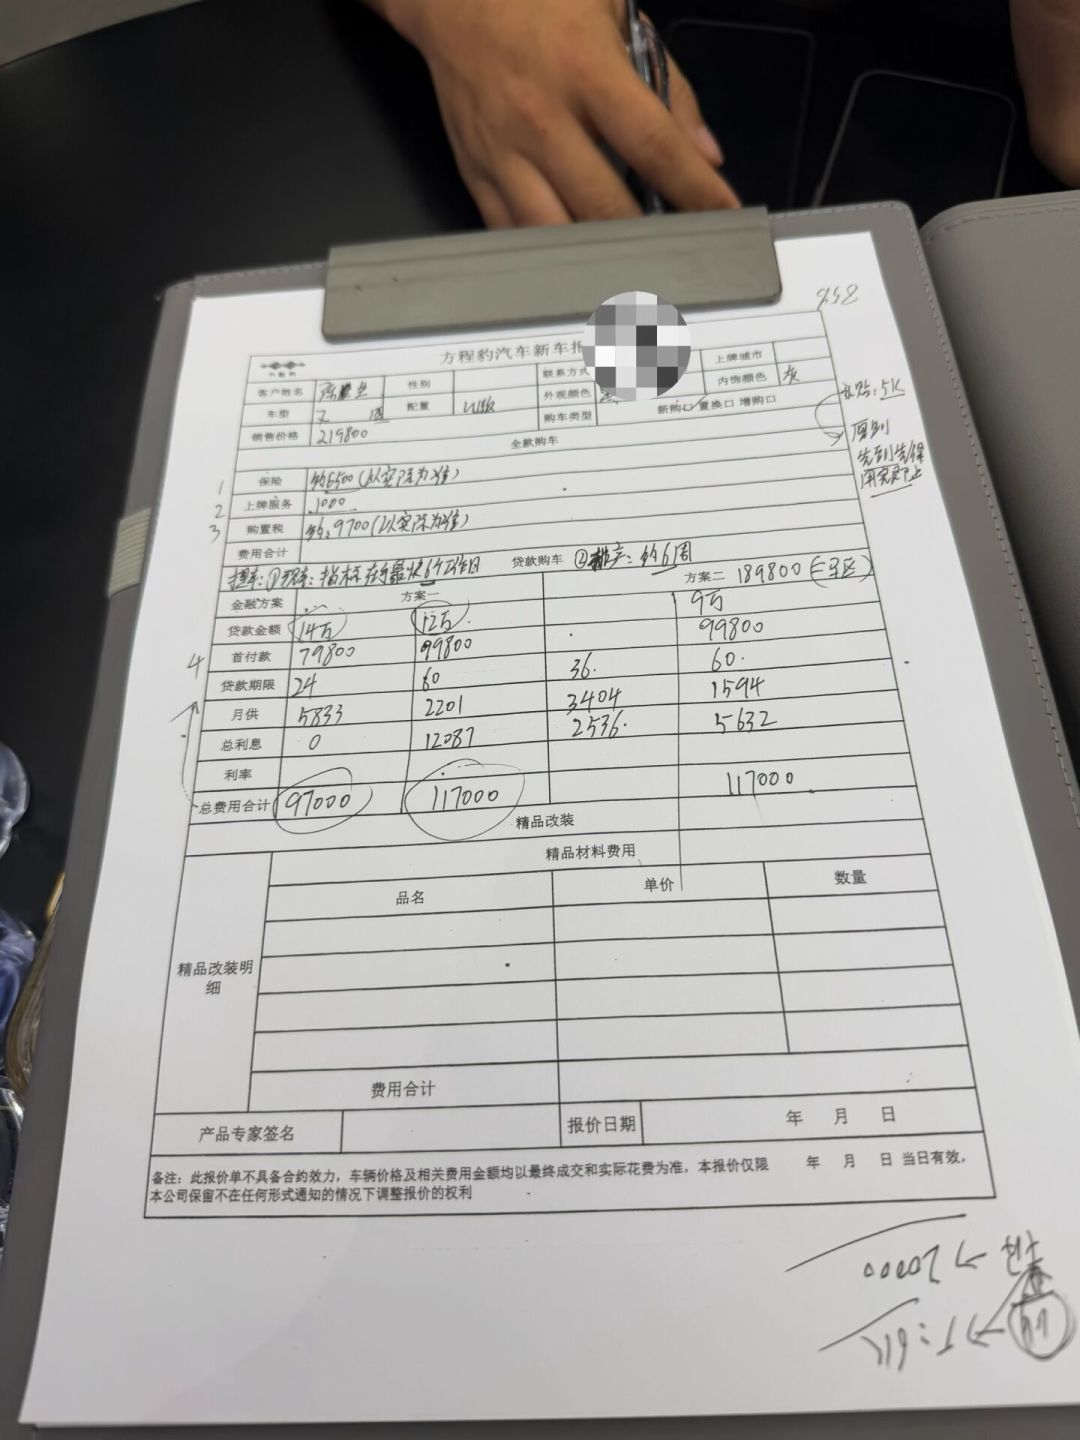 方程豹汽车新车报
客户姓名 性别 联系方式 上牌城市
车型 配置 外观颜色 内饰颜色 灰
销售价格 219800 购车类型 新购口 置换口 增购口
补贴:5K
原则
先到先得
用完即止
全款购车
1 保险 约6500(以实际为准)
2 上牌服务 1000
3 购置税 约:9700(以实际为准)
费用合计
提车:①现车:指标在手最快6个工作日 贷款购车 ②排产:约6周
金融方案 方案一 方案二 189800
贷款金额 14万 12万 9万
4 首付款 79800 99800 99800
贷款期限 24 60 36 60
月供 5833 2201 3404 1594
总利息 0 12087 2536 5632
利率
总费用合计 97000 117000 117000
精品改装
精品改装明细
精品材料费用
品名 单价 数量
费用合计
产品专家签名 报价日期 年 月 日
备注:此报价单不具备合约效力,车辆价格及相关费用金额均以最终成交和实际花费为准,本报价仅限 年 月 日 当日有效,
本公司保留不在任何形式通知的情况下调整报价的权利